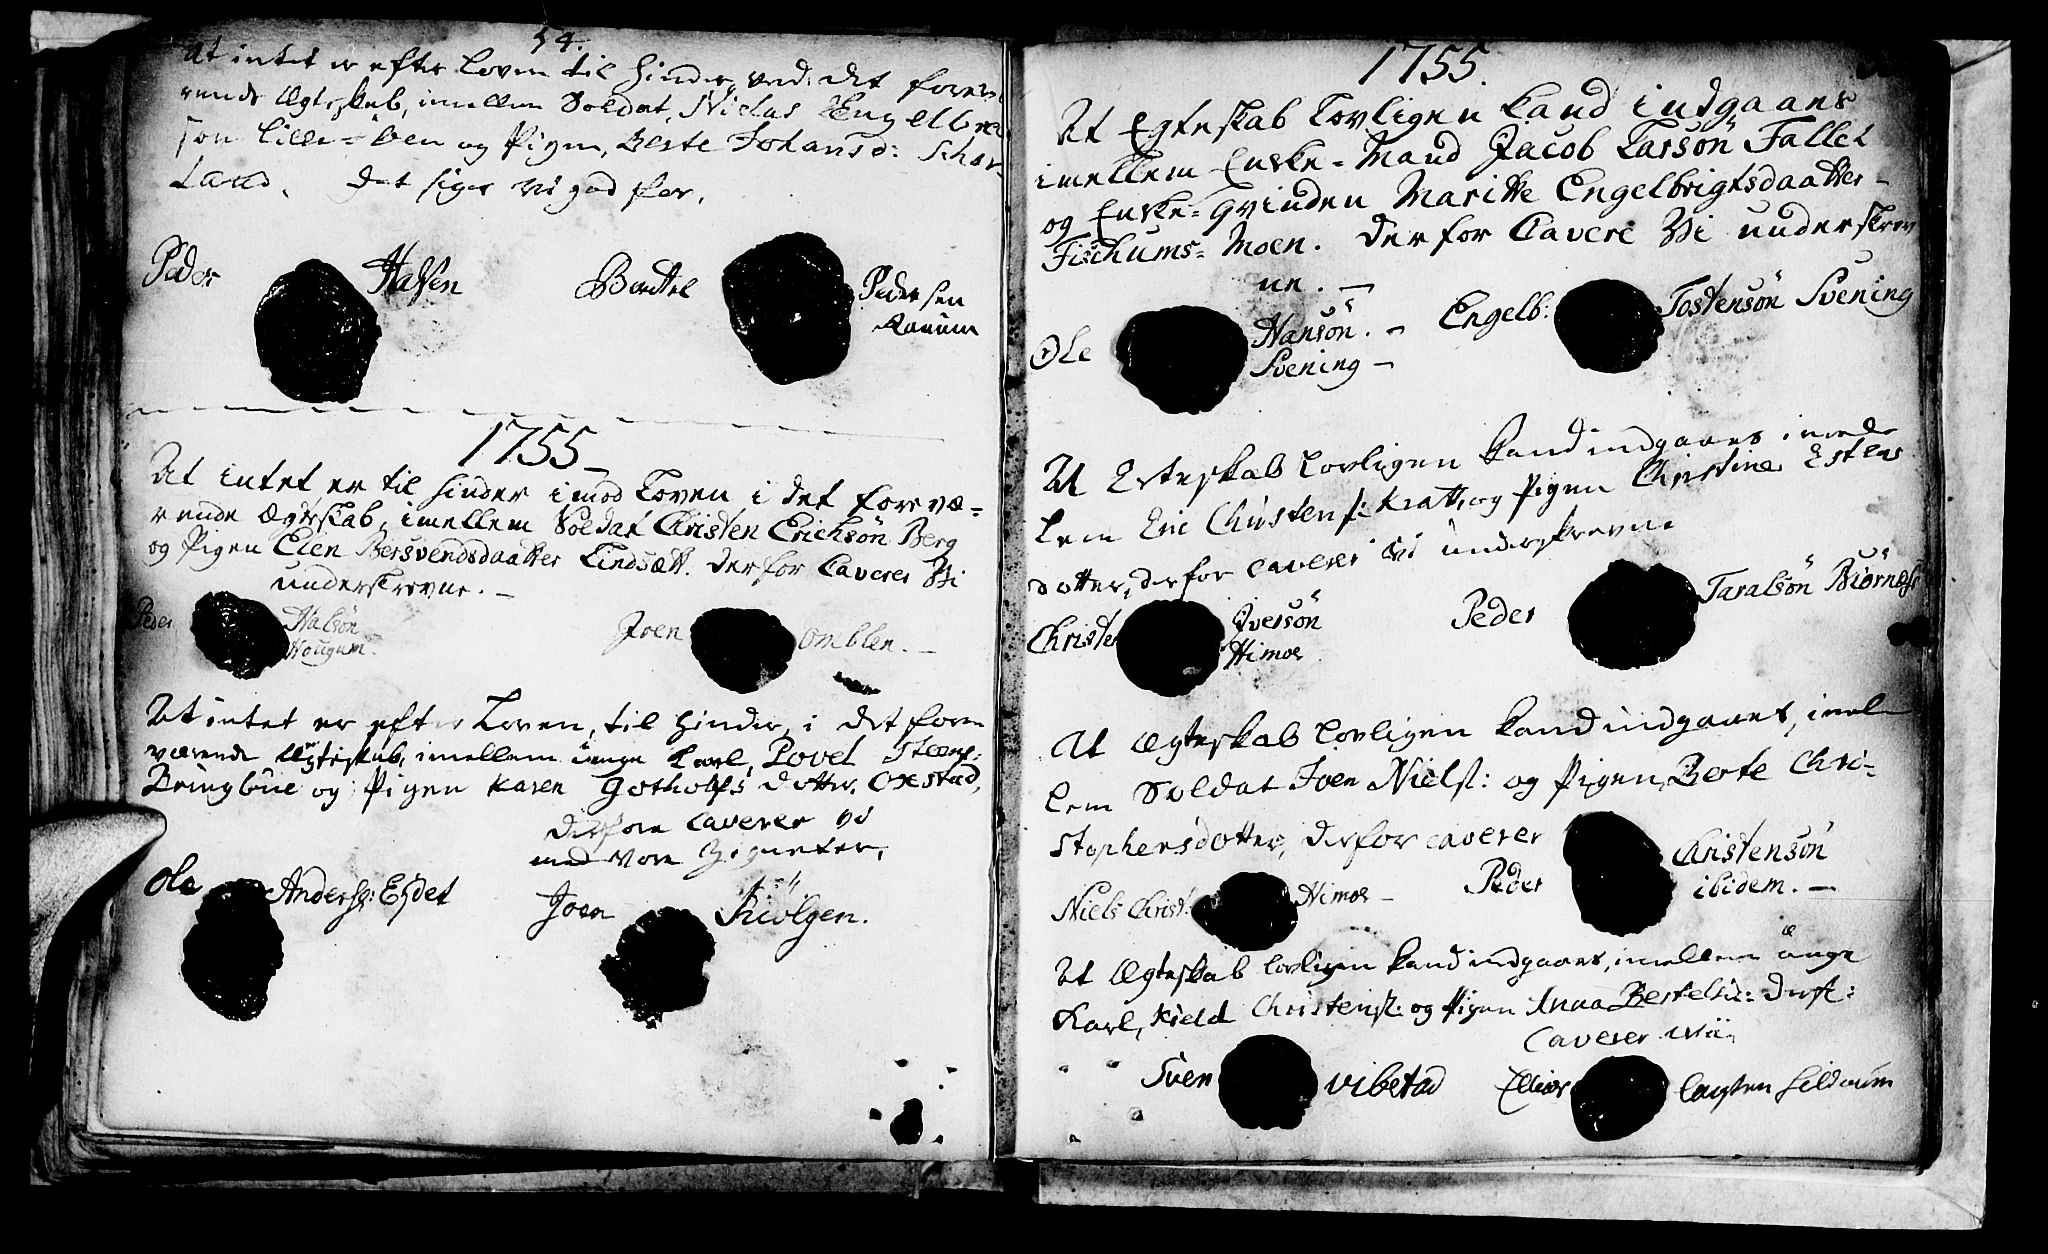 54.
At intet er efter Loven til hinder, ved det forevæ
rende Ægteskab, imellem Soldat, Nielas Engelbre
son Lille-Øen og Pigen, Berte Johansd: Schor-
Land. Det siger vi god for,
Peder Halsen Bertel Pedersen
1755
At intet er til hinder imod Loven i det forevæ=
rende Ægteskab, imellem Soldat Christen Erichsøn Berg
og Pigen Elen Bersvendsdaatter Lindsætt. Derfor Caverer Vi
underskrevne. -
Peder Halsøn Joen Omblen. -
Hougum.
At intet er efter Loven, til hinder, i det fore
værende Ægteskab, imellem unge Karl, Povel
og Pigen Karen Gotholfs dotter, Oxstad,
Derfore Caverer vi
med vore Zigneter,
Ole Anders: Ejdet Joen Kiølgen.
1755.
At Egteskab Lovligen kand indgaaes
imellem Enke-Mand Jacob Larsøn Fallet
og Enke=Qvinden Maritte Engelbrigtsdaatter-
Fischums=Moen. Derfor Cavere Vi underskrev
ne. -
Ole Hansøn. - Engelb: Tostensøn Svening
Svening -
At Ecteskab Lovligen kand indgaaes imel
lem Eric Christens: Kratt, og Pigen Christine Estens
dotter, derfor caverer vi underskrevne
Christe Iversøn Peder Taralsøn Biørnes
Himoe
At Ægteskab lovligen kand indgaaes, imel
lem Soldat Joen Niels: og Pigen, Berte Chri-
stophersdotter, derfor caverer
Niels Christ: Himoe - Peder Christensøn
ibidem. -
At Ægteskab lovligen kand indgaaes, imellem unge
Karl, Kield Christens: og Pigen Anna Bertelsd: Derf:
Caverer Wii
Sven Vibstad Ellias Carsten Seldnum